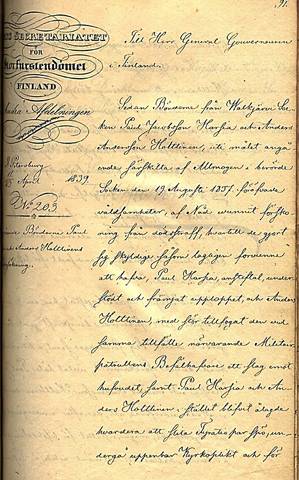 91.
SECRETARIATET
FÖR
Storfurstendömet
FINLAND
Afdelningen
S:t Petersburg
15 April 1839.
N:o 203
Bönderne Paul
och Anders Holttinens
Till Herr General Gouverneuren
i Finland.
Sedan Bönderne från Walkjärvi Soc-
ken Paul Jacobsson Karpia och Anders
Andersson Holttinen, i målet angå-
ende särskilta af Allmogen i berörde
Socken den 19 Augusti 1837 föröfvade
våldsamheter, af Nåd vunnit försko-
ning från dödsstraff, hvartill de gjort
sig skyldige såsom lagligen
att hafva, Paul Karpia, anstiftat, under-
stödt och främjat upploppet, och Anders
Holttinen, med stör tillfogat den vid
samma tillfälle närvarande Militair
patrullens Befälhafvare ett slag emot
hufvudet, samt Paul Karpia och An-
ders Holttinen i stället blifvit ålagde
hvardera att slita Fyratio par spö, un-
dergå uppenbar Kyrkoplikt och för